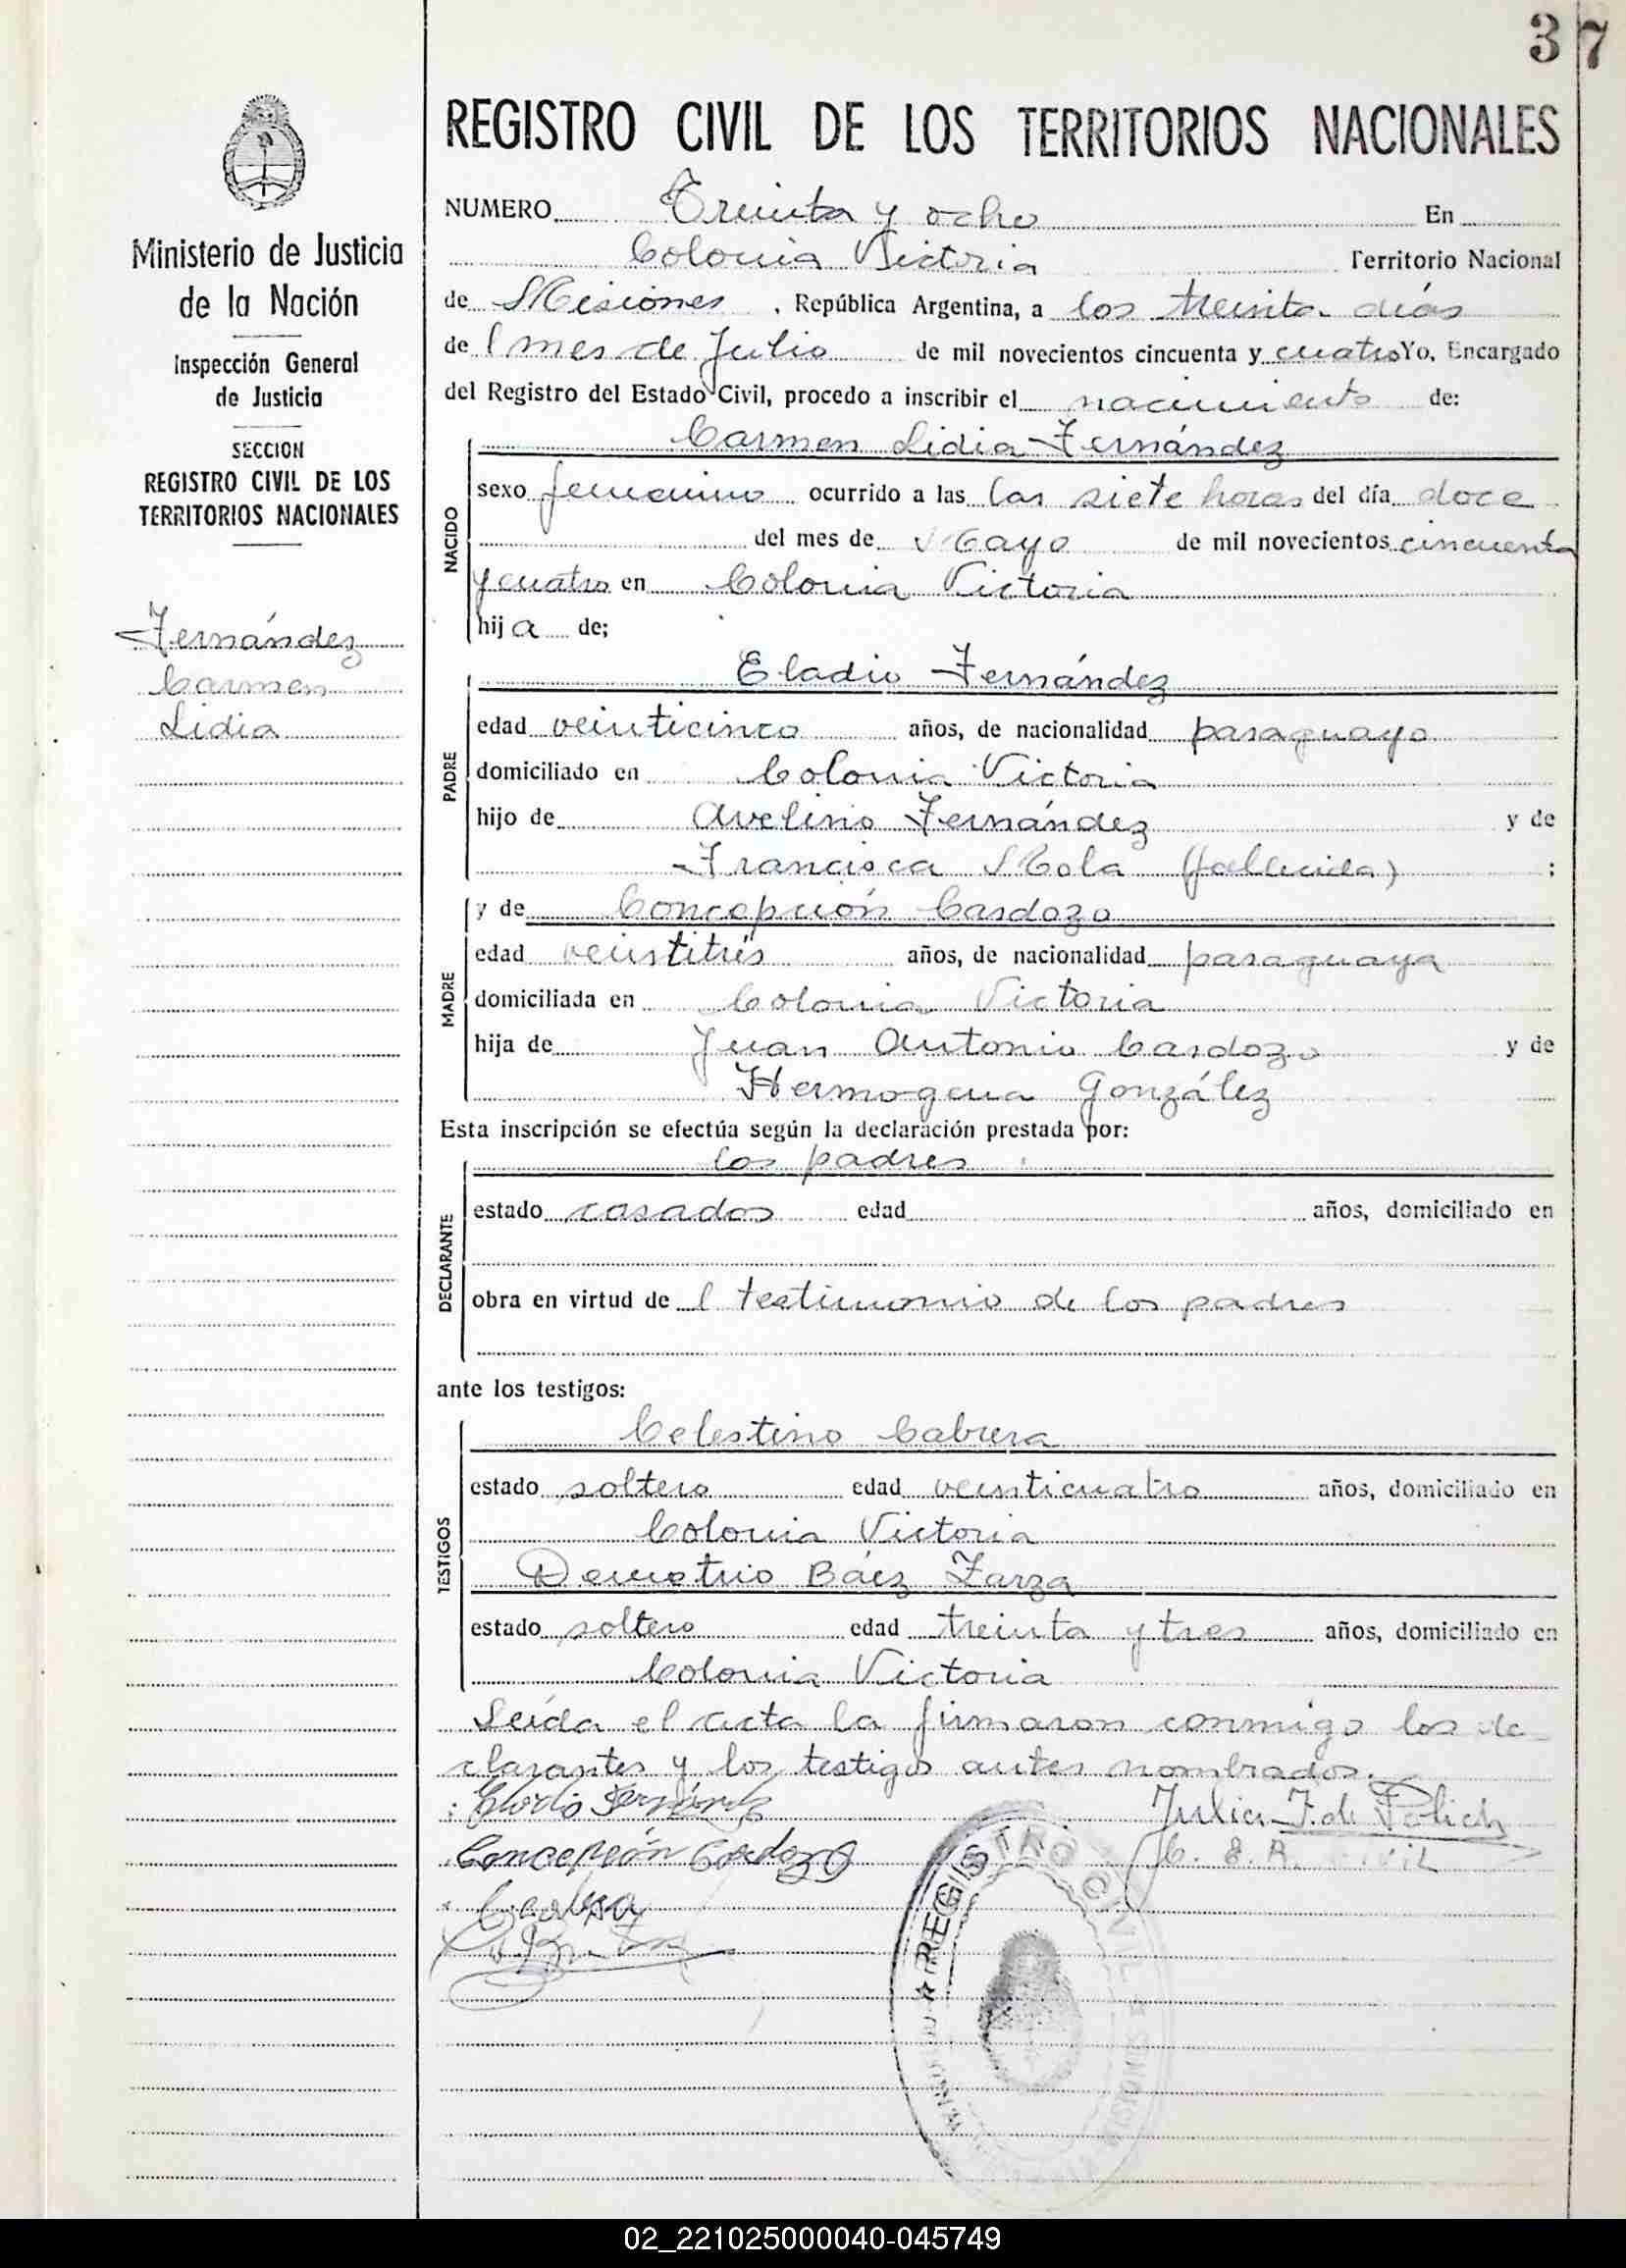 37
REGISTRO CIVIL DE LOS TERRITORIOS NACIONALES
Ministerio de Justicia
de la Nación
Inspección General
de Justicia
SECCION
REGISTRO CIVIL DE LOS
TERRITORIOS NACIONALES
Fernández
Carmen
Lidia
NUMERO Treinta y ocho En
Colonia Victoria Territorio Nacional
de Misiones , República Argentina, a los treinta días
de l mes de Julio de mil novecientos cincuenta y cuatro Yo, Encargado
del Registro del Estado Civil, procedo a inscribir el nacimiento de:
NACIDO
Carmen Lidia Fernández
sexo femenino ocurrido a las las siete horas del día doce
del mes de Mayo de mil novecientos cincuenta
y cuatro en Colonia Victoria
hija de;
PADRE
Eladio Fernández
edad veinticinco años, de nacionalidad paraguayo
domiciliado en Colonia Victoria
hijo de Avelino Fernández y de
Francisca Mola (fallecida) ;
MADRE
y de Concepción Cardozo
edad veintitrés años, de nacionalidad paraguaya
domiciliada en Colonia Victoria
hija de Juan Antonio Cardozo y de
Hermogena González
Esta inscripción se efectúa según la declaración prestada por:
DECLARANTE
los padres
estado casados edad años, domiciliado en
obra en virtud de l testimonio de los padres
ante los testigos:
TESTIGOS
Celestino Cabrera
estado soltero edad veinticuatro años, domiciliado en
Colonia Victoria
Demetrio Báez Zarza
estado soltero edad treinta y tres años, domiciliado en
Colonia Victoria
Leída el acta la firmaron conmigo los de
clarantes y los testigos antes nombrados.
Eladio Fernández
Julia F. de Polich
Concepción Cardozo
E. R. Civil
REGISTRO CIVIL
02_221025000040-045749